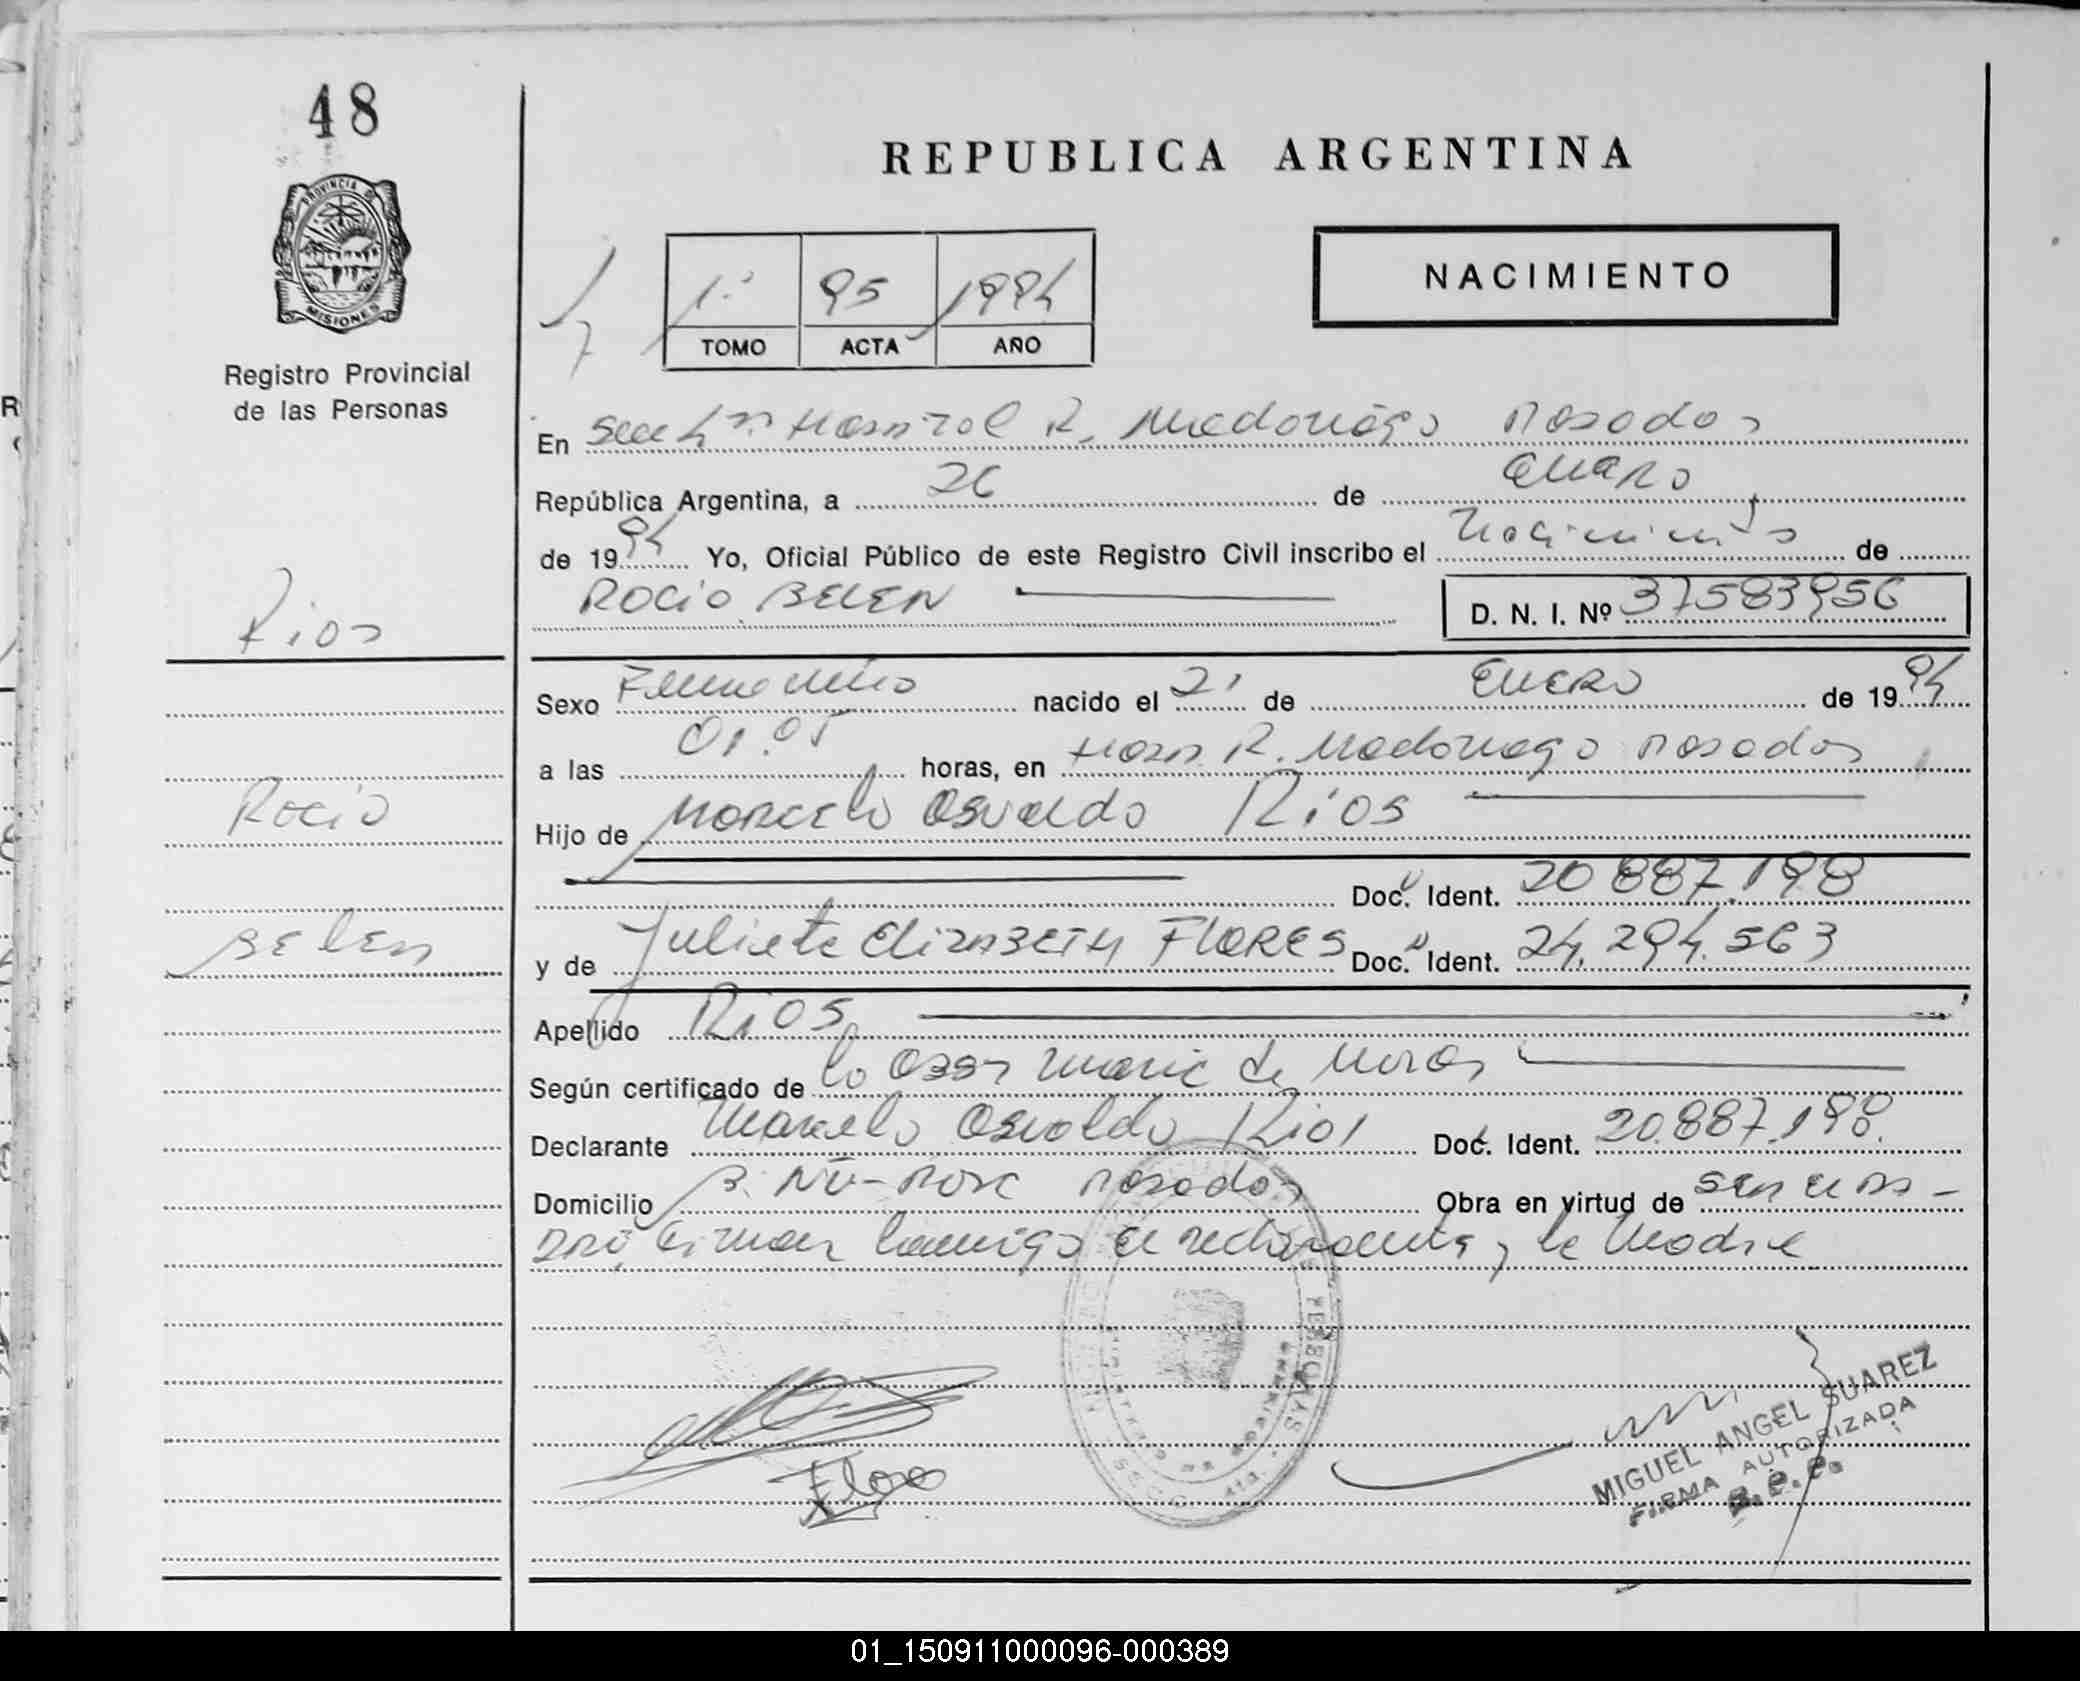 48
PROVINCIA DE
MISIONES
Registro Provincial
de las Personas
REPUBLICA ARGENTINA
1º 95 1994
TOMO ACTA AÑO
NACIMIENTO
En Secc 1ra Hospital R. Madariaga Posadas
República Argentina, a 26 de enero
de 1994 Yo, Oficial Público de este Registro Civil inscribo el Nacimiento de
ROCIO BELEN D. N. I. Nº 37583956
Rios
Rocio
Belen
Sexo Femenino nacido el 21 de ENERO de 1994
a las 01.05 horas, en Hosp. R. Madariaga Posadas
Hijo de Marcelo Osvaldo Rios
Doc. Ident. 20.887.198
y de Julieta Elizabeth FLORES Doc. Ident. 24.294.563
Apellido Rios
Según certificado de la Obst. Maria de
Declarante Marcelo Osvaldo Rios Doc. Ident. 20.887.198.
Domicilio Posadas Obra en virtud de ser el pa-
dre, firman conmigo el declarante y la Madre
Flores
MIGUEL ANGEL SUAREZ
FIRMA AUTORIZADA
R.P.P.
01_150911000096-000389